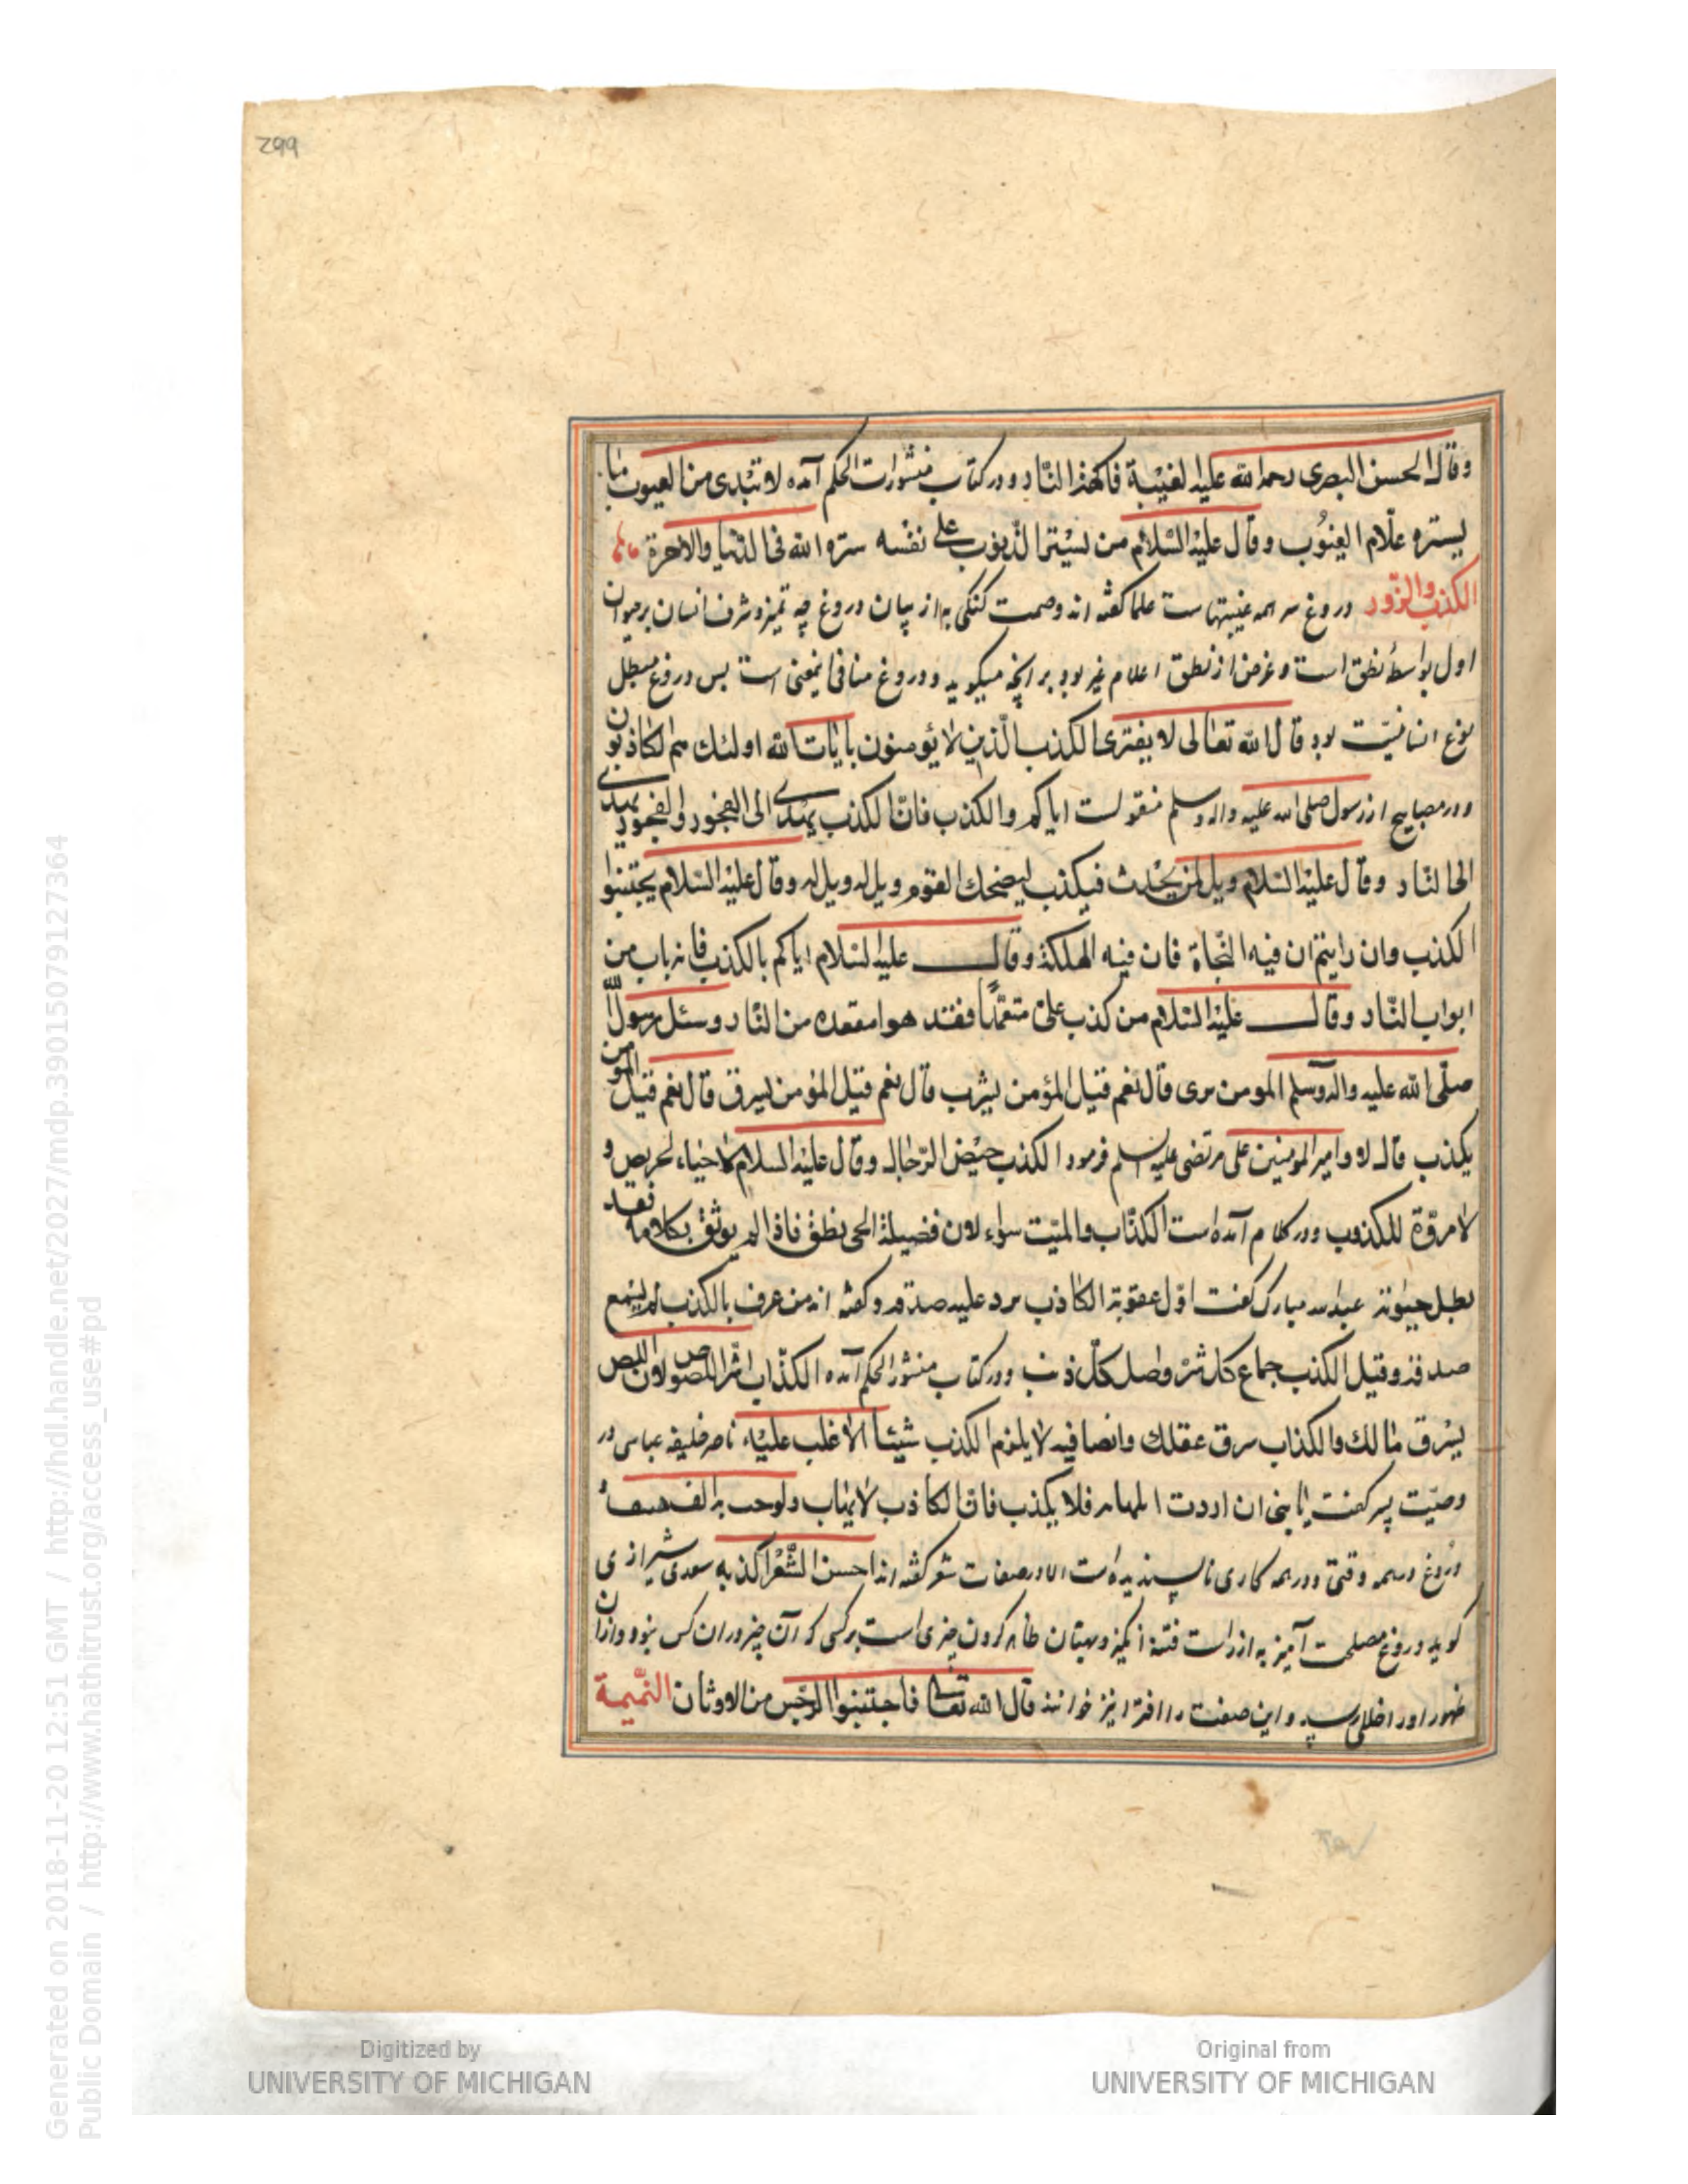 299
وقال الحسن البصری رحمة الله علیه الغیبة فاکهة النار و در کتاب منثورات الحکم آمده لا تبدی من العیوب ما
یستره علّام الغیُوب وقال علیْه السّلام من یستر الذنوب علی نفسه ستره الله فی الدنیا والآخرة
الکذب والزّور دروغ سر همه غیبتهاست علما گفته اند وصمت گنگی به از بیان دروغ چه تمیز و شرف انسان بر حیوان
اول بواسطهٔ نطق است و غرض از نطق اعلام غیر بود بر آنچه میگوید و دروغ منافی اینمعنی است بس دروغ مبطل
نوع انسانیّت بود قال الله تعالی لا یفتری الکذب الّذین لا یؤمنون بایات الله اولئک هم لکاذبون
و در مصابیح از رسول صلی الله علیه واله وسلم منقولست ایاکم والکذب فانّ الکذب یهدی الی الفجور والفجور یهدی
الی النّار وقال علیْه السّلام ویل لمن یحدث فیکذب لیضحک القوم ویل له ویل له وقال علیْه السّلام یجتنبوا
الکذب وان رایتم ان فیه النجاة فان فیه الهلکة وقال علیه السّلام ایاکم بالکذب فانه باب من
ابواب النّار وقال علیْه السّلام من کذب علیّ متعمّداً فقد هوا مقعده من النّار وسئل رسول الله
صلّی الله علیه واله وسلم المومن یری قال نعم قیل المؤمن یشرب قال نعم قیل المؤمن یسرق قال نعم قیل المومن
یکذب قال لا و امیر المومنین علی مرتضی علیه السلم فرمود الکذب حیْض الرّجال وقال علیْه السلام لاحیاء لحریص و
لامروّة للکذوب و در کلام آمده است الکذّاب والمیّت سواء لان فضیلة الحی نطق فاذا لم یوثق بکلامه فقد
بطل حیوته عبدالله مبارک گفت اوّل عقوبة الکاذب یرد علیه صدقه و گفته اند من عرف بالکذب لم یسمع
صدقه وقیل الکذب جماع کل شرّ واصل کلّ ذنب و در کتاب منثور الحکم آمده الکذّاب شرّ اللصوص لان اللص
یسرق مالک والکذاب سرق عقلک وایضا فیه لایلزم الکذب شیئا الا غلب علیْه ناصر خلیفه عباسی در
وصیّت پسر گفت یا بنی ان اردت المهابه فلا یکذب فان الکاذب لا یهاب ولو حب به الف
دروغ در همه وقتی و در همه کاری ناپسندیده است الا در صفات شعر گفته اند احسن الشّعر اکذبه سعدی شیرازی
گوید دروغ مصلحت آمیز به از راست فتنه انگیز و بهتان ظاهر کردن چیزی است بر کسی که آن چیز در آن کس نبود و از آن
ظهور او را خللی رسد و این صفت را افترا نیز خوانند قال الله تعالی فاجتنبوا الرّجس من الاوثان النّمیمة
Generated on 2018-11-20 12:51 GMT / http://hdl.handle.net/2027/mdp.39015079127364
Public Domain / http://www.hathitrust.org/access_use#pd
Digitized by
UNIVERSITY OF MICHIGAN
Original from
UNIVERSITY OF MICHIGAN